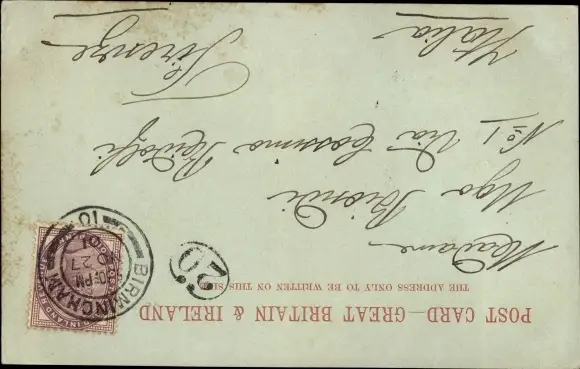 POST CARD—GREAT BRITAIN & IRELAND
THE ADDRESS ONLY TO BE WRITTEN ON THIS SIDE
Madame
Ugo Biondi
No 1 Via Cassimo Ridolfi
Firenze
Italia
20
BIRMINGHAM
27
01